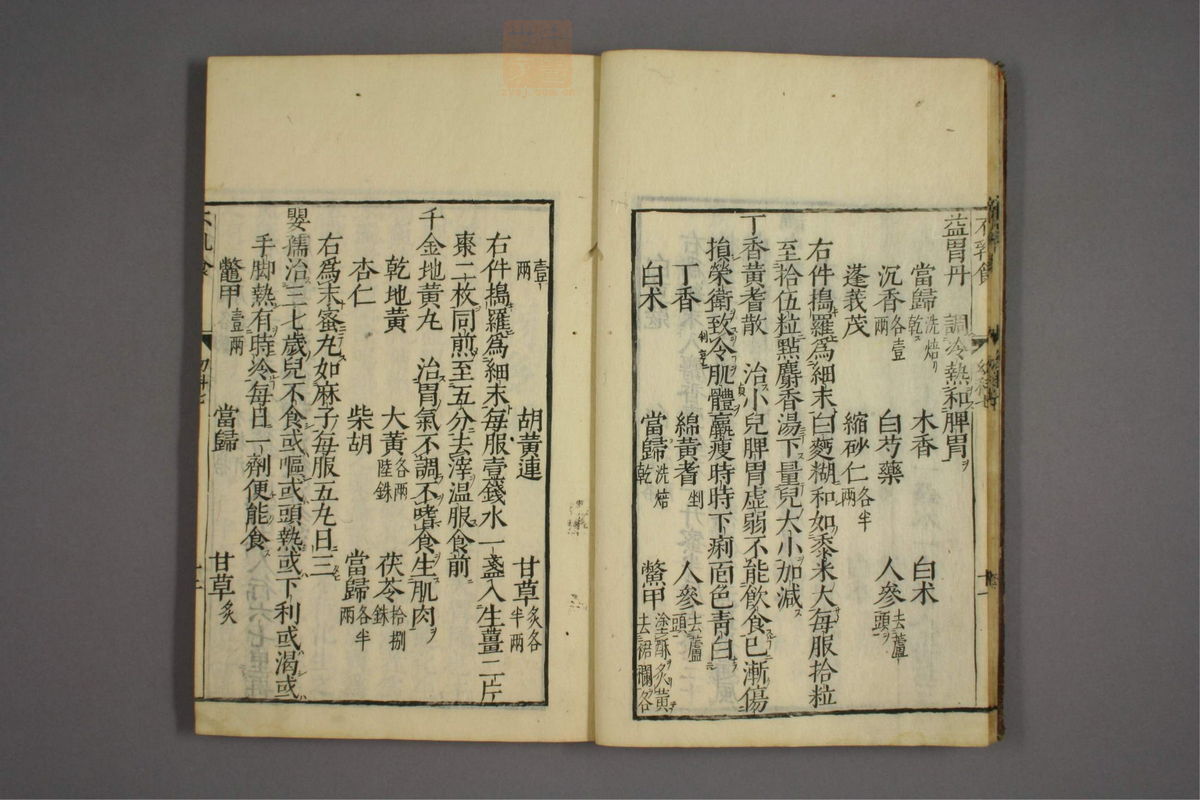 益胃丹　調冷熱和脾胃
當歸洗焙乾　木香　白术
沉香各壹兩　白芍藥　人參去蘆頭
蓬莪茂　縮砂仁各半兩
右件搗羅爲細末白麫糊和如黍米大每服拾粒
至拾伍粒點麝香湯下量兒大小加減
丁香黃耆散　治小兒脾胃虛弱不能飲食已漸傷
損榮衛致令肌體羸瘦時時下痢面色青白
丁香　綿黃耆剉　人參去蘆頭
白术　當歸洗焙乾　鱉甲塗酥炙黃去裙襴各
壹兩
胡黃連　甘草炙各半兩
右件搗羅爲細末每服壹錢水一盞入生薑二片
棗二十枚同煎至五分去滓温服食前
千金地黃丸　治胃氣不調不嗜食生肌肉
乾地黃　大黃各陸兩銖　茯苓拾捌銖
杏仁　柴胡　當歸各半兩
右爲末蜜丸如麻子每服五丸日三
嬰孺治三七歲兒不食或嘔或頭熱或下利或渴或
手脚熱有時冷每日一劑便能食
鼈甲壹兩　當歸　甘草炙